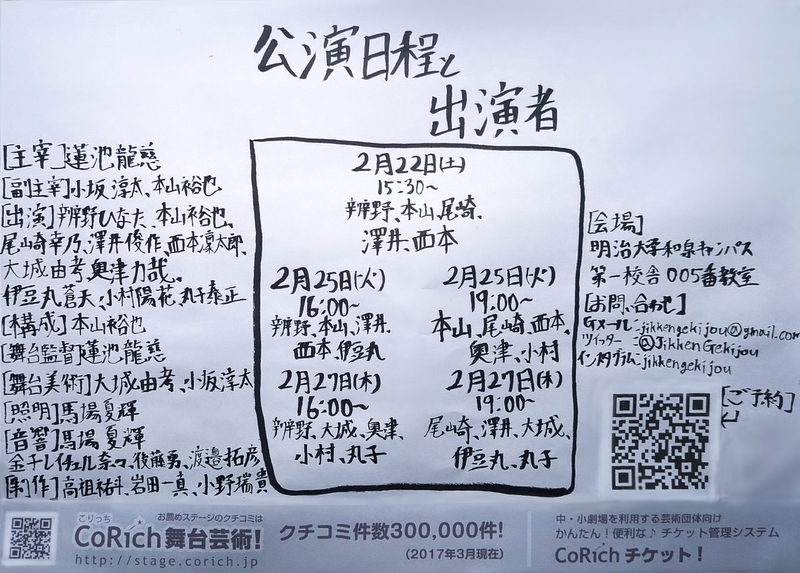 公演日程と
出演者
[主宰]蓮池龍慈
[副主宰]小坂淳太、本山裕也
[出演]辨野ひなた、本山裕也、
尾山奇幸乃、澤井俊作、西本凛太郎、
大城由考、奥津力哉、
伊豆丸蒼天、小村陽花、丸子泰正
[構成]本山裕也
[舞台監督]蓮池龍慈
[舞台美術]大城由考、小坂淳太
[照明]馬場夏輝
[音響]馬場夏輝
金子レイチェル奈々、後藤勇、渡邉拓彦
[制作]高祖結斗、岩田一真、小野瑞貴
2月22日(土)
15:30~
辨野、本山、尾崎、
澤井、西本
2月25日(火)
16:00~
辨野、本山、澤井、
西本、伊豆丸
2月25日(火)
19:00~
本山、尾崎、西本、
奥津、小村
2月27日(木)
16:00~
辨野、大城、奥津、
小村、丸子
2月27日(木)
19:00~
尾崎、澤井、大城、
伊豆丸、丸子
[会場]
明治大学和泉キャンパス
第一校舎005番教室
[お問い合わせ]
Gメール:jikkengekijou@gmail.com
ツイッター:@JikkenGekijou
インスタグラム:jikkengekijou
[ご予約]
こりっち
お薦めステージのクチコミは
CoRich舞台芸術!
http://stage.corich.jp
クチコミ件数300,000件!
(2017年3月現在)
中・小劇場を利用する芸術団体向け
かんたん!便利な♪ チケット管理システム
CoRichチケット!